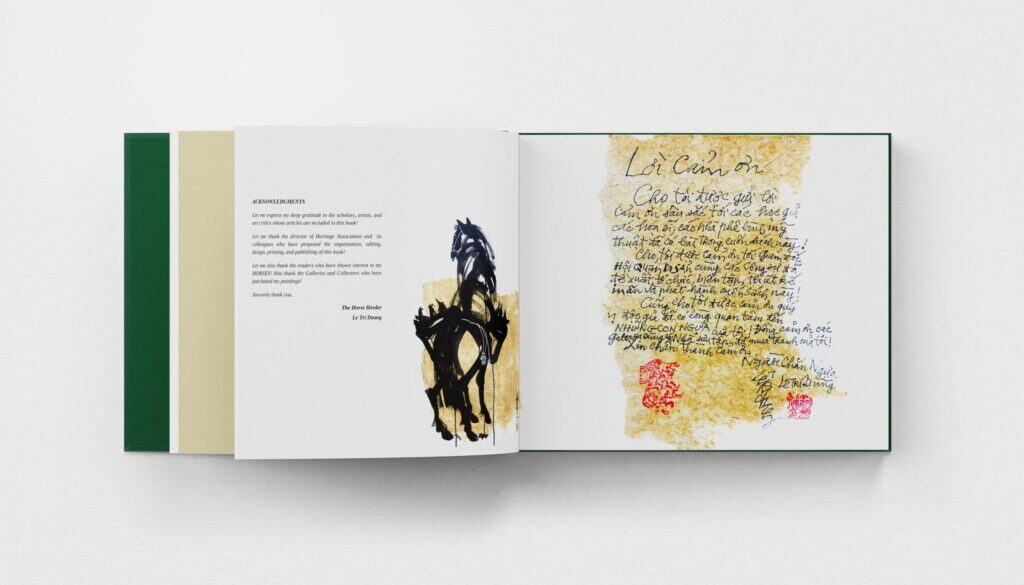 ACKNOWLEDGMENTS
Let me express my deep gratitude to the scholars, artists, and
art critics whose articles are included in this book!
Let me thank the director of Heritage Association and its
colleagues who have proposed the organization, editing,
design, printing, and publishing of this book!
Let me also thank the readers who have shown interest in my
HORSES! Also thank the Galleries and Collectors who have
purchased my paintings!
Sincerely thank you.
The Horse Herder
Le Tri Dzung
Lời Cảm ơn
Cho tôi được gửi lời
cảm ơn sâu sắc tới các học giả
các họa sĩ, các nhà phê bình mỹ
thuật đã có bài trong cuốn sách này!
Cho tôi được cảm ơn tới Giám đốc
HỘI QUÁN DI SẢN cùng các Cộng sự đã
đề xuất, tổ chức, biên tập, thiết kế
in ấn và phát hành cuốn sách này!
Cũng cho tôi được cảm ơn quý
vị độc giả đã có công quan tâm đến
NHỮNG CON NGỰA của tôi! Đồng cảm ơn các
sưu tập, đã mua tranh của tôi!
Xin chân thành cảm ơn.
Người Chăn Ngựa
LÊ TRÍ DŨNG